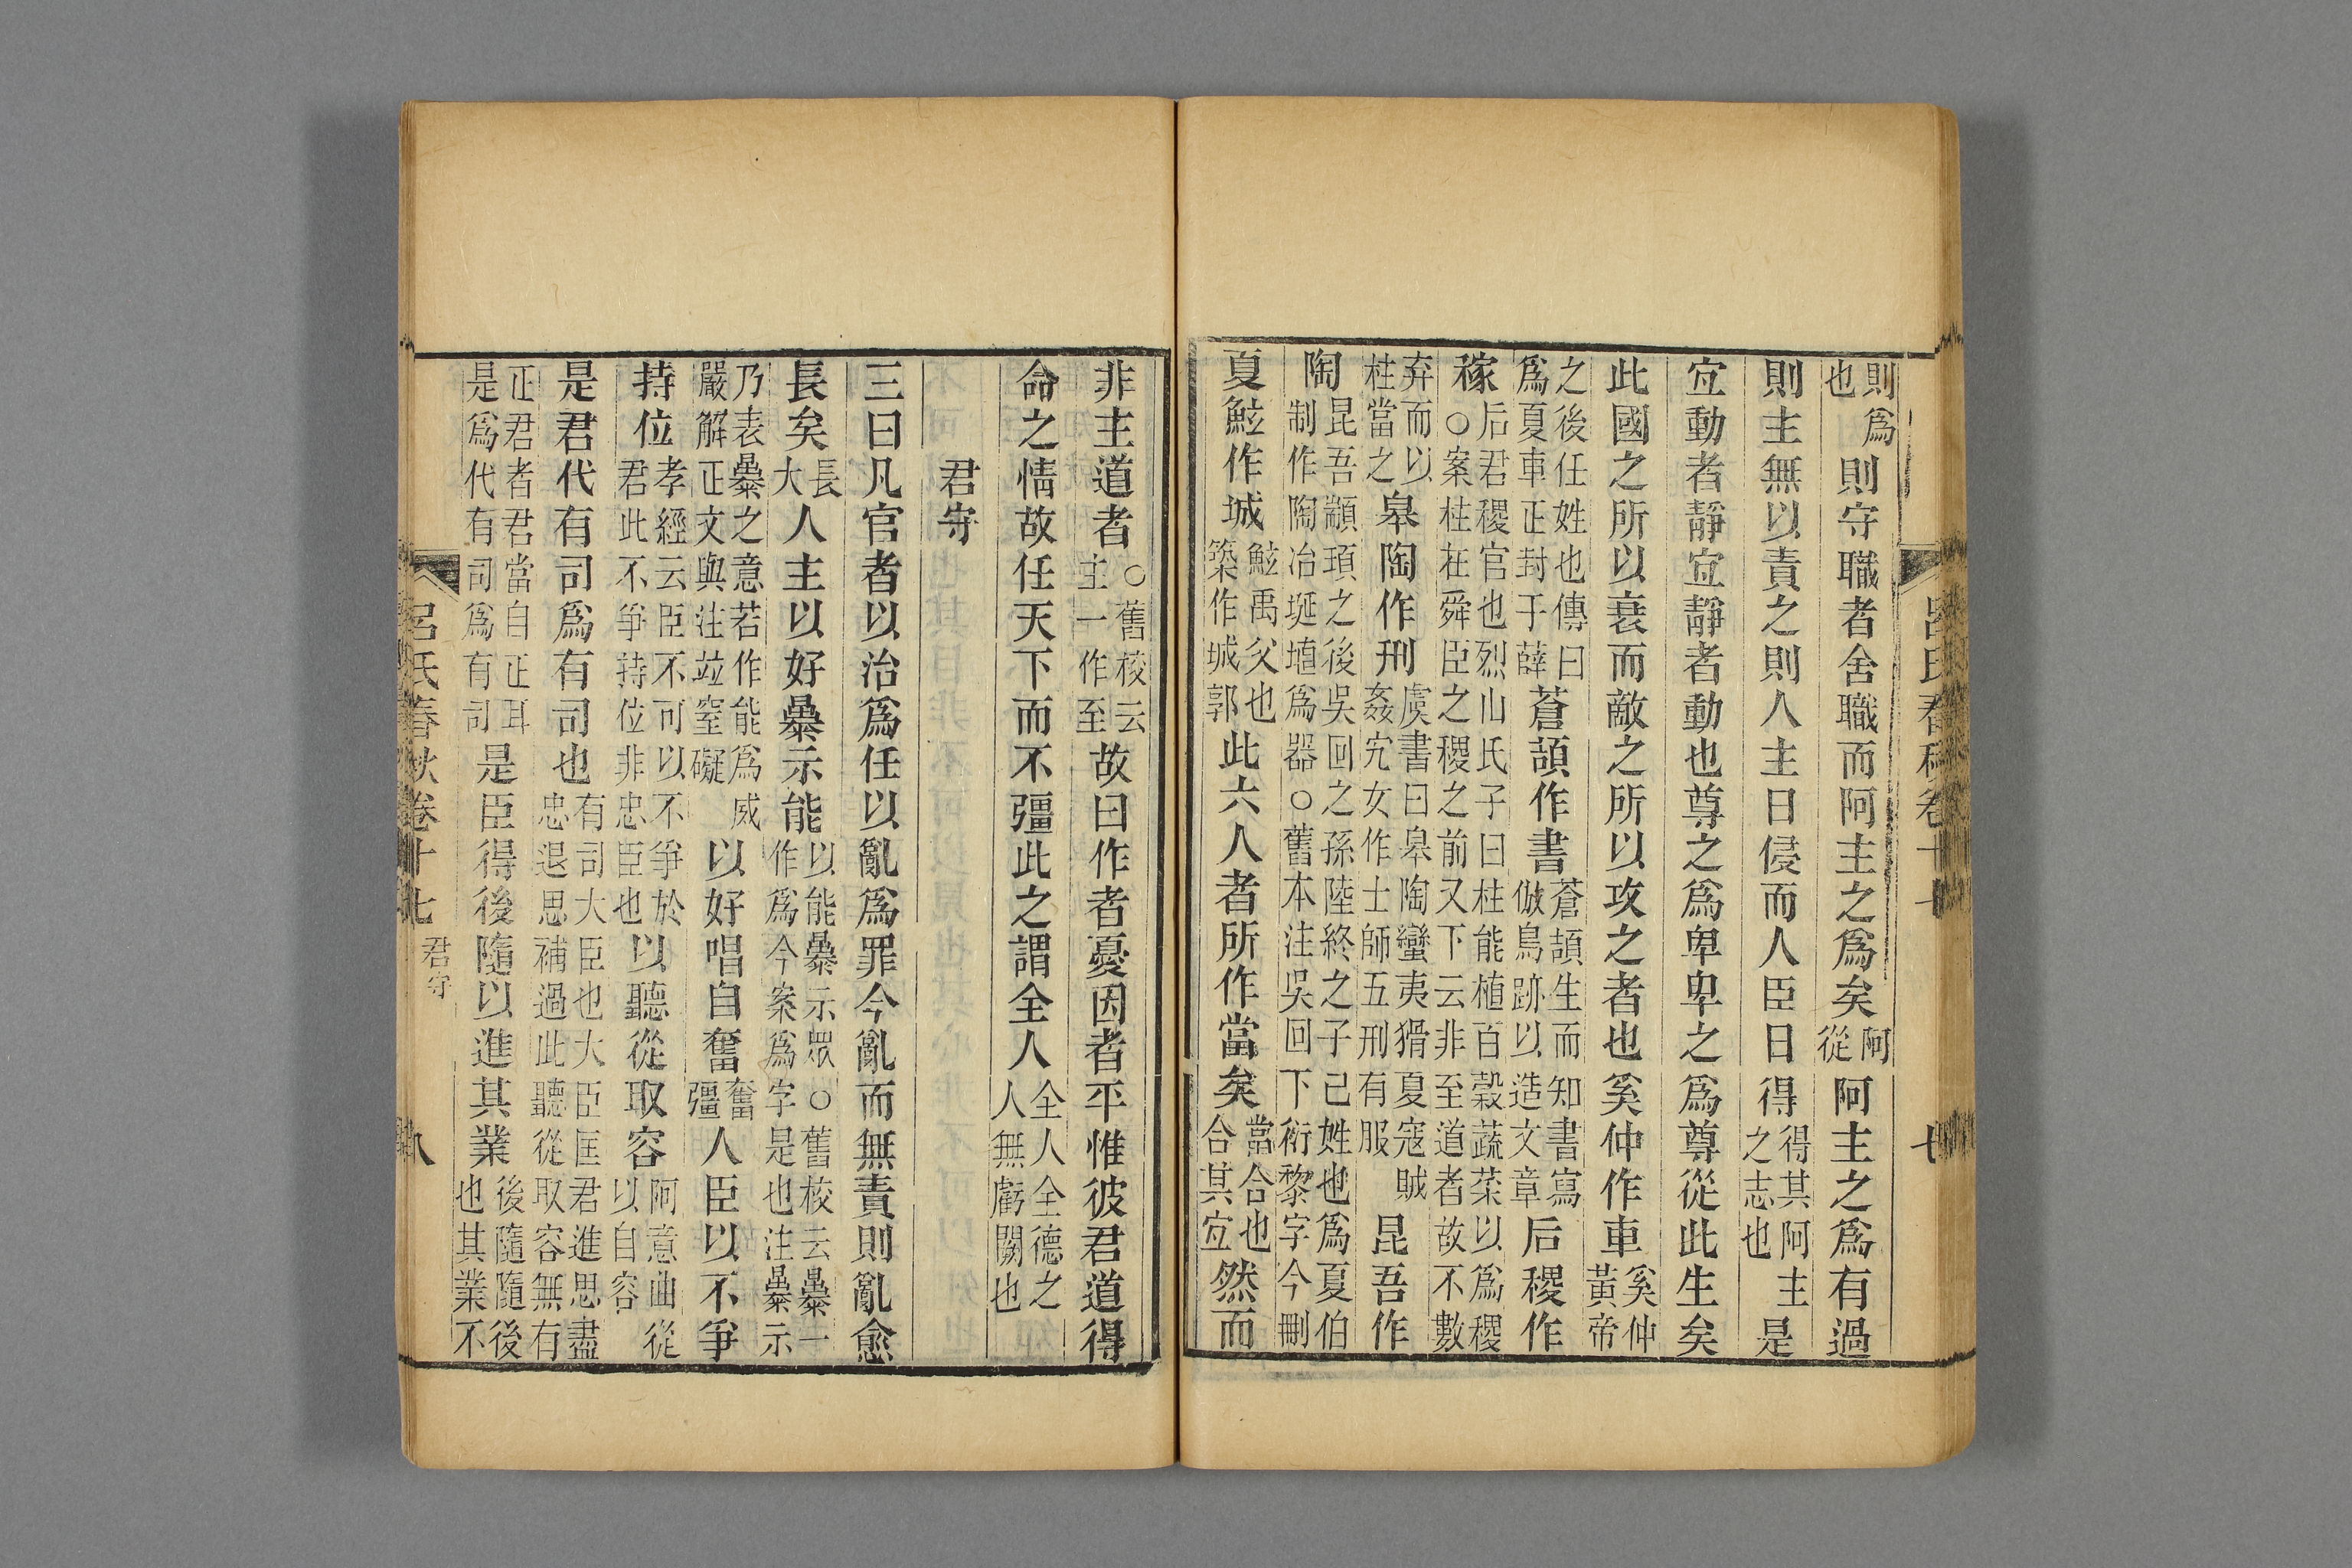 則爲也則守職者舍職而阿主之爲矣阿從阿主之爲有過
則主無以責之則人主日侵而人臣日得得其阿主之志也是
宐動者靜宐靜者動也尊之爲卑卑之爲尊從此生矣
此國之所以衰而敵之所以攻之者也奚仲作車奚仲黃帝
之後任姓也傳曰爲夏車正封于薛蒼頡作書蒼頡生而知書寫倣鳥跡以造文章后稷作
稼后君稷官也烈山氏子曰柱能植百穀蔬菜以爲稷○案柱在舜臣之稷之前又下云非至道者故不數
弃而以柱當之皋陶作刑虞書曰皋陶蠻夷猾夏寇賊姦宄女作士師五刑有服昆吾作
陶昆吾顓頊之後吳回之孫陸終之子己姓也爲夏伯制作陶冶埏埴爲器○舊本注吳回下衍黎字今刪
夏鮌作城鮌禹父也築作城郭此六人者所作當矣當合也合其宐然而
呂氏春秋卷十七 七
非主道者○舊校云主一作至故曰作者憂因者平惟彼君道得
命之情故任天下而不彊此之謂全人全人全德之人無虧闕也
君守
三曰凡官者以治爲任以亂爲罪今亂而無責則亂愈
長矣長大人主以好㬥示能以能㬥示眾○舊校云㬥一作爲今案爲字是也注㬥示
乃表㬥之意若作能爲威嚴解正文與注竝窒礙以好唱自奮奮彊人臣以不爭
持位孝經云臣不可以不爭於君此不爭持位非忠臣也以聽從取容阿意曲從以自容
是君代有司爲有司也有司大臣也大臣匡君進思盡忠退思補過此聽從取容無有
正君者君當自正耳是爲代有司爲有司是臣得後隨以進其業後隨隨後也其業不
呂氏春秋卷十七 君守 八